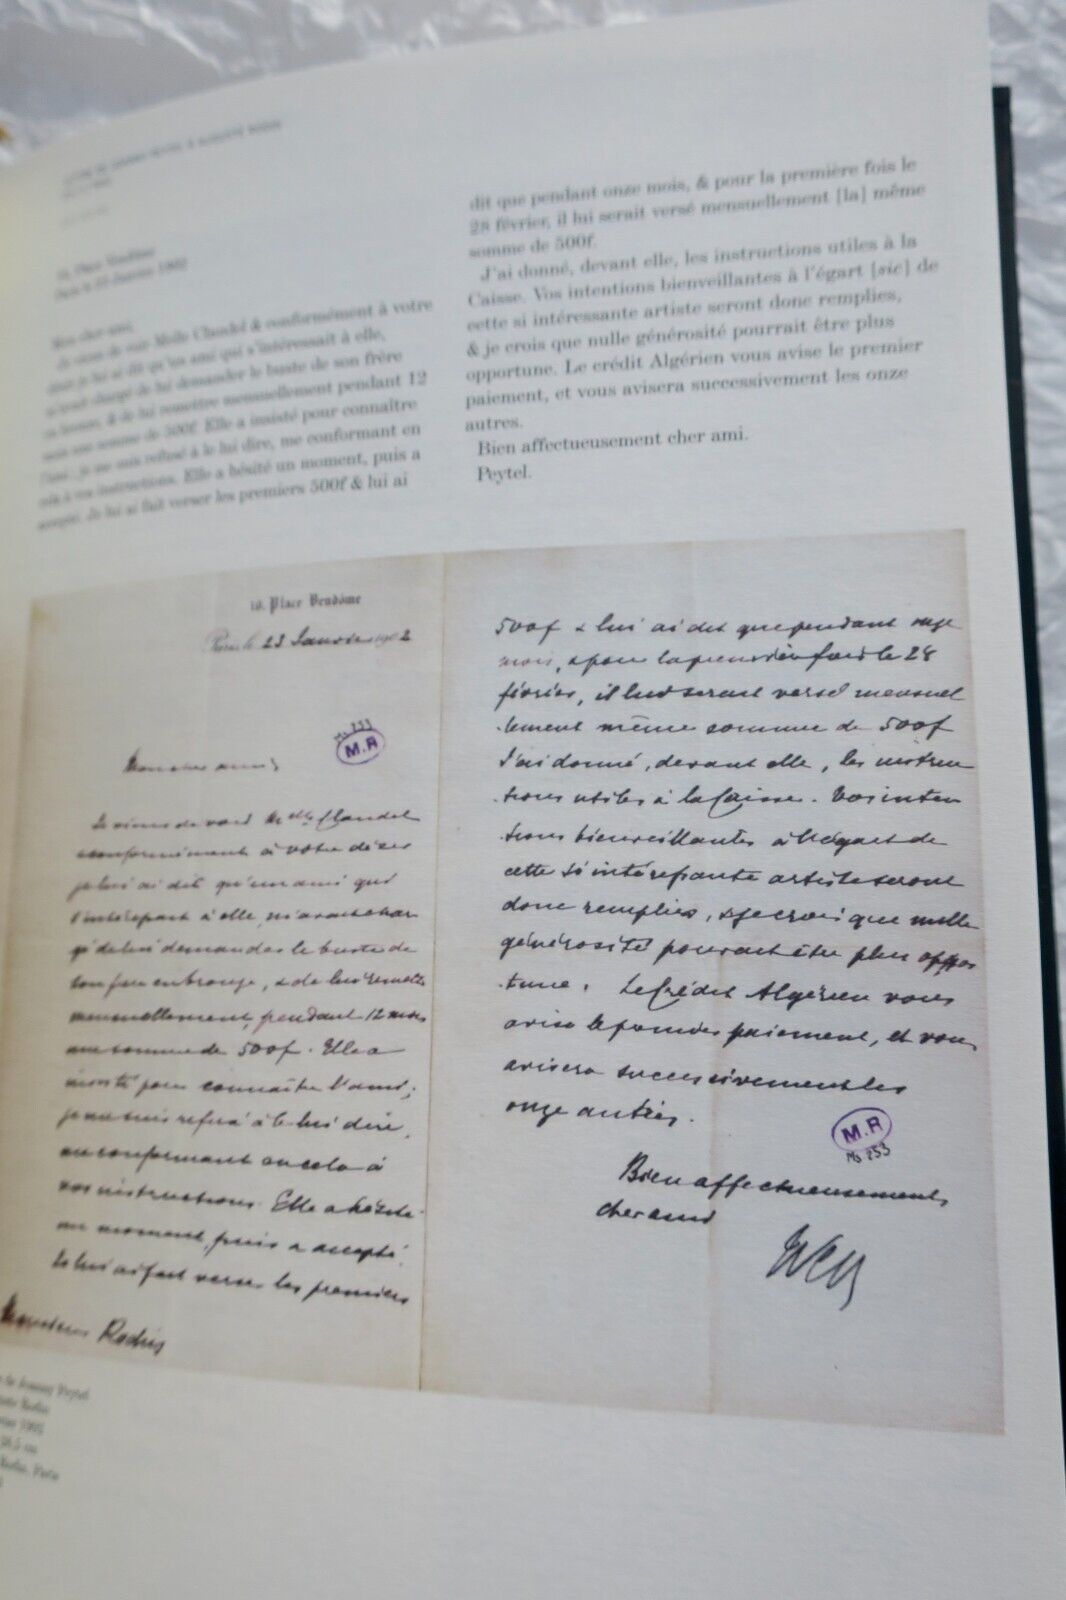 LETTRE DE JOANNY PEYTEL À AUGUSTE RODIN
Place Vendôme
Paris le 23 Janvier 1902
Mon cher ami,
Je viens de voir Melle Claudel & conformément à votre
désir je lui ai dit qu'un ami qui s'intéressait à elle,
m'avait chargé de lui demander le buste de son frère
en bronze, & de lui remettre mensuellement pendant 12
mois une somme de 500f. Elle a insisté pour connaître
l'ami; je me suis refusé à le lui dire, me conformant en
cela à vos instructions. Elle a hésité un moment, puis a
accepté. Je lui ai fait verser les premiers 500f & lui ai
dit que pendant onze mois, & pour la première fois le
28 février, il lui serait versé mensuellement [la] même
somme de 500f.
J'ai donné, devant elle, les instructions utiles à la
Caisse. Vos intentions bienveillantes à l'égart [sic] de
cette si intéressante artiste seront donc remplies,
& je crois que nulle générosité pourrait être plus
opportune. Le crédit Algérien vous avise le premier
paiement, et vous avisera successivement les onze
autres.
Bien affectueusement cher ami.
Peytel.
10, Place Vendôme
Paris, le 23 Janvier 1902
Ms 253
M.R
Mon cher ami,
Je viens de voir Melle Claudel
conformément à votre désir
je lui ai dit qu'un ami qui
s'intéressait à elle, m'avait char
gé de lui demander le buste de
son frère en bronze, & de lui remettre
mensuellement, pendant 12 mois
une somme de 500f. Elle a
insisté pour connaître l'ami;
je me suis refusé à le lui dire,
me conformant en cela à
vos instructions. Elle a hésité
un moment, puis a accepté.
Je lui ai fait verser les premiers
Monsieur Rodin
500f & lui ai dit que pendant onze
mois, & pour la première fois le 28
février, il lui serait versé mensuel
lement même somme de 500f
J'ai donné, devant elle, les instruc
tions utiles à la Caisse. Vos inten
tions bienveillantes à l'égart de
cette si intéressante artiste seront
donc remplies, & je crois que nulle
générosité pourrait être plus oppor
tune. Le Crédit Algérien vous
avise le premier paiement, et vous
avisera successivement les
onze autres.
M.R
Ms 253
Bien affectueusement
cher ami
Peytel
de Joanny Peytel
Auguste Rodin
1902
cm
Rodin, Paris